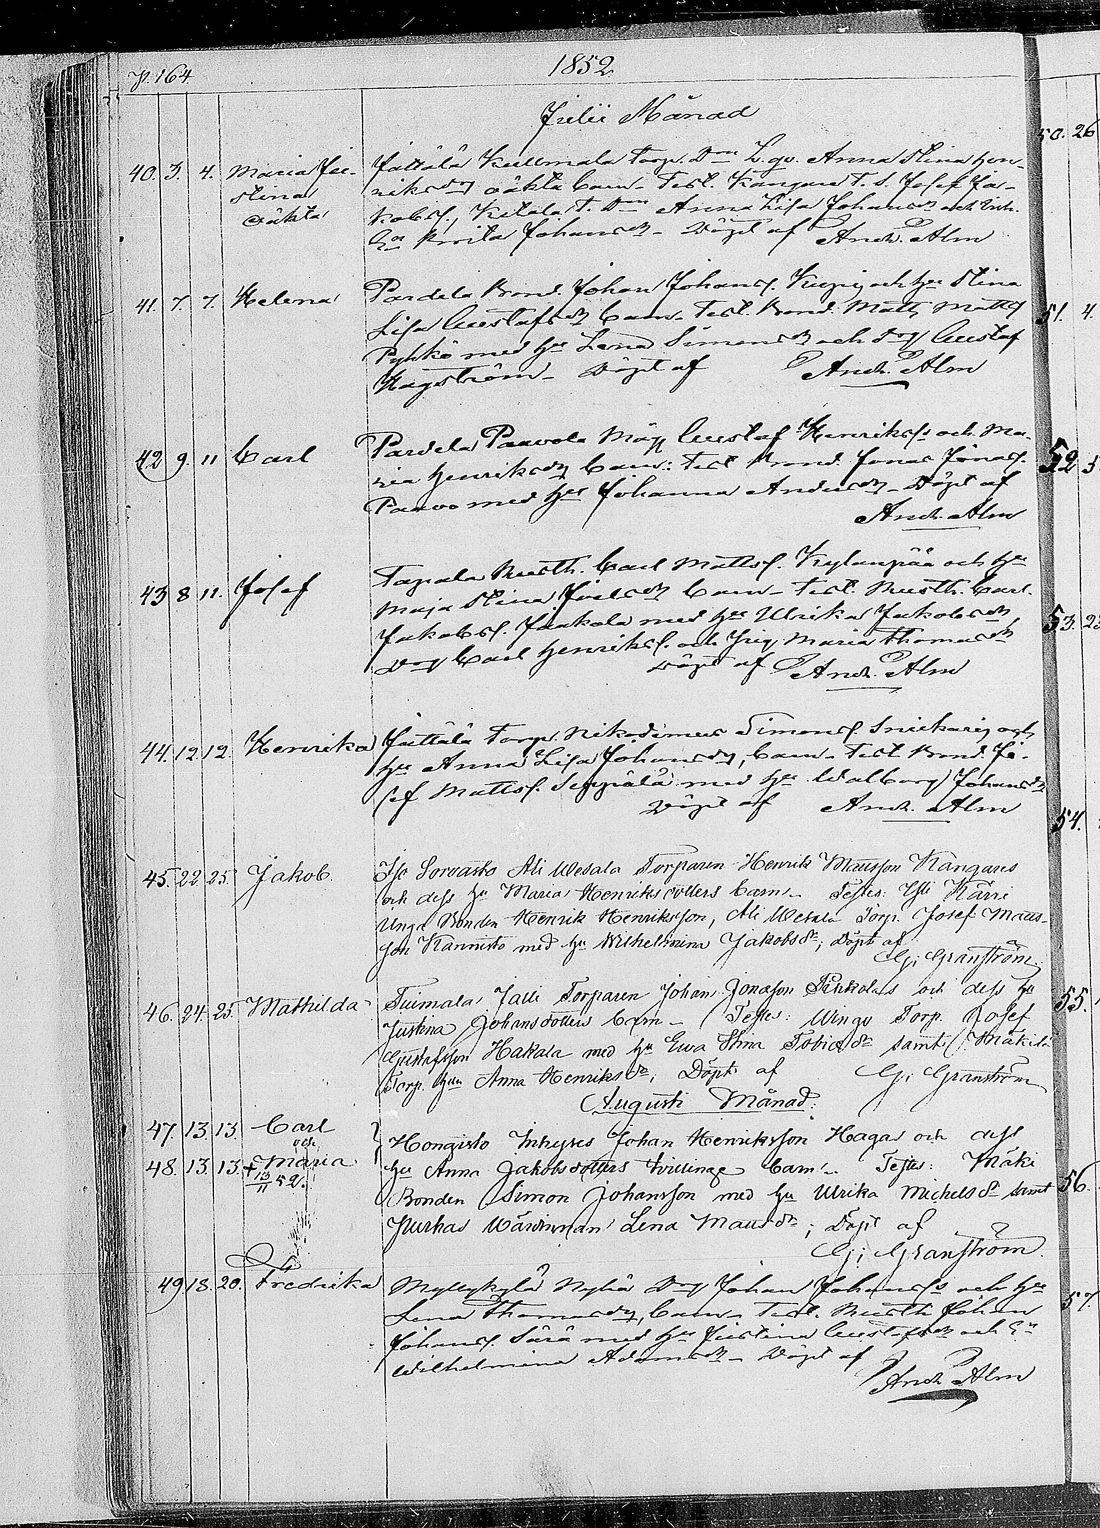 p. 164
1852
Julii Månad
40. 3. 4. Maria Ju- Jättälä Kullmala Torp. Dtr L. qv. Anna Stina Hen-
stina riksdr oäkta barn. Test. Kangare T. S. Josef Ja-
oäkta kobss., Ketala T. Dtr Anna Lisa Johansdr och Ink.
Hu Johansdr. Döpt af And. Alm
41. 7. 7. Helena Pardela Bond. Johan Johanss. och Hu Stina
Lisa Gustafsdr barn. Test. Bond. Matts Mattss
Pyhkö med Hu Lena Simonsdr och Dng Gustaf
Hagström. Döpt af And. Alm
42 9. 11 Carl Pardela Paavola Måg Gustaf Henrikss. och Ma-
ria Henriksdr barn. Test. Bond. Jonas Jonass.
Paavo med Hu Johanna Andersdr. Döpt af
And. Alm
43 8 11. Josef Tapala Rusth. Carl Mattss. Kylänpää och Hu
Maja Stina Joelsdr barn. Test. Rusth. Carl
Jakobss. Jaakola med Hu Ulrika Jakobsdr
Dng Carl Henrikss. och Pig. Maria Thomasdr
Döpt af And. Alm
44. 12 12. Henrika Jättälä Torp. Nikodemus Simonss. Snickari och
Hu Anna Lisa Johansdr, barn. Test Bond. Jo-
sef Mattss. Seppälä med Hu Walborg Johansdr
Döpt af And. Alm
45. 22 25. Jakob. Iso Sorvasto Ali Wesala Torparen Henrik Mattsson Kangares
och dess hu Maria Henriksdotters barn. Testes: Kärri
Unga Bonden Henrik Henriksson, Ali Wesala Torp. Josef Matts-
son Kannisto med hu Wilhelmina Jakobsdr; Döpt af
G. Granström
46. 24. 25. Mathilda Tuimala Jalli Torparen Johan Jonasson och dess hu
Justina Johansdotters barn. Testes: Torp. Josef
Gustafsson Hakala med hu Ewa Stina Tobiasdr samt Mäkilä
Torp. hun Anna Henriksdr; Döpt af G. Granström
Augusti Månad.
47. 13. 13. Carl Hongisto Inhyses Johan Henriksson Hagas och dess
och
48. 13. 13. + Maria hu Anna Jakobsdotters tvillinge barn. Testes: Mäki
13/11 52. Bonden Simon Johansson med hu Ulrika Michelsdr samt
Lena Mattsdr; Döpt af
G. Granström.
49 18. 20. Fredrika Myllykylä Nylä Dng Johan Johanss och Hu
Lena Thomasdr, barn. Test. Rusth Johan
Johanss. Särä med Hu Justina Gustafsdr och
Wilhelmina Adamsdr. Döpt af
And. Alm
50. 26
51. 4.
52
53. 23
54.
55.
56.
57.